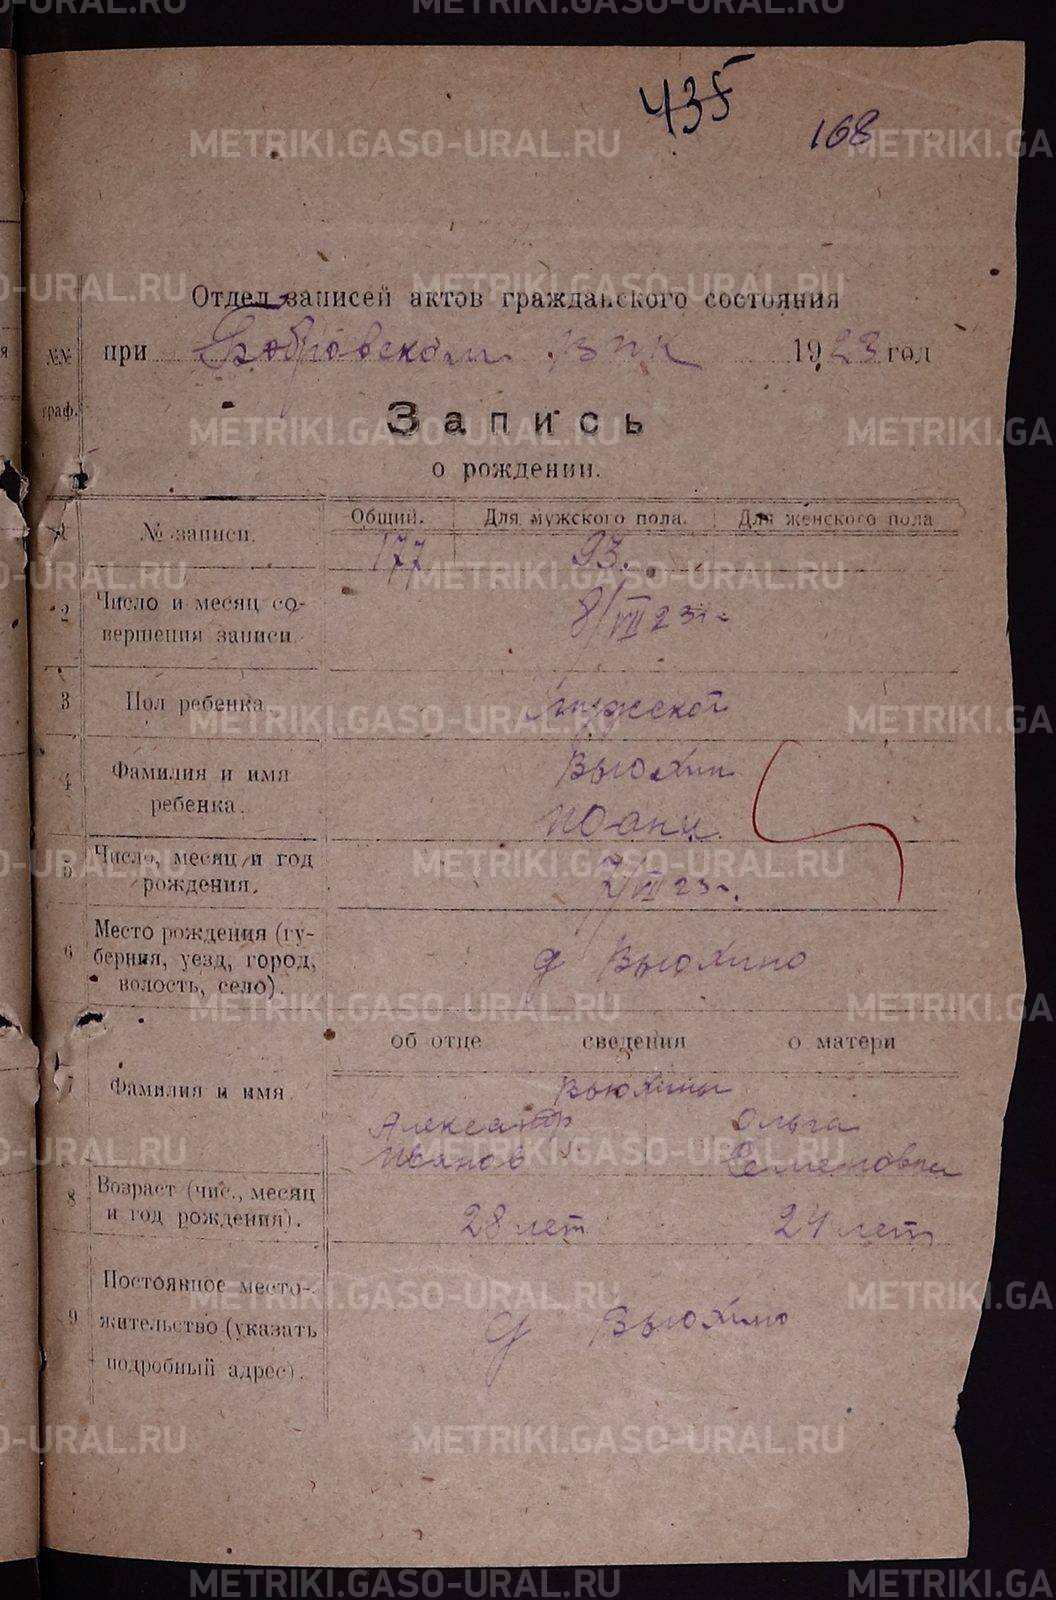 435
168
Отдел записей актов гражданского состояния
№№ граф.
при Бобровском ВИК 1923 год
Запись
о рождении.
Общий. Для мужского пола. Для женского пола
1 № записи. 177 93.
2 Число и месяц со-
вершения записи 8/VII 23 г.
3 Пол ребенка мужской
4 Фамилия и имя
ребенка. Вьюхин
Иоанн.
5 Число, месяц и год
рождения. 7/VII 23 г.
6 Место рождения (гу-
берния, уезд, город,
волость, село). д Вьюхино
об отце сведения о матери
7 Фамилия и имя Вьюхины
Александр Ольга
Иванов Семеновна
8 Возраст (чис., месяц
и год рождения). 28 лет 24 лет
9 Постоянное место-
жительство (указать
подробный адрес). д Вьюхино
METRIKI.GASO-URAL.RU